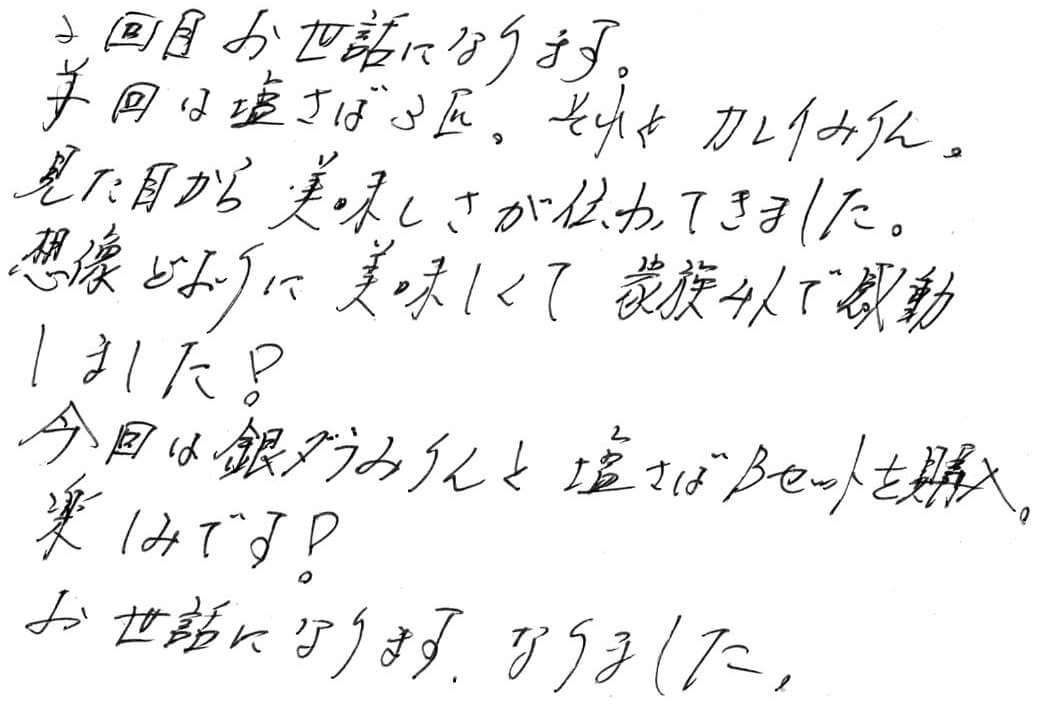 2回目お世話になります。
前回は塩さば3匹。それとカレイみりん。
見た目から美味しさが伝わってきました。
想像どおりに美味しくて家族4人で感動
しました!
今回は銀ダラみりんと塩さばBセットを購入。
楽しみです!
お世話になります。なりました。